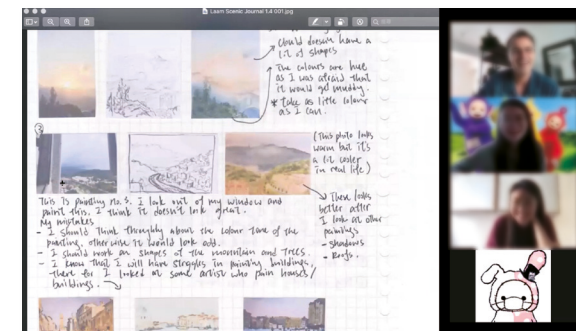 Learn Scenic Journal 1.4 001.jpg
Could doesnin have a
lit of shapes
The colours are hue
as I was afraid that
it would get muddy.
* Take as little colour
as I can.
③
(This photo looks
warm but it's
a lil cooler
in real life)
This is painting no. 3. I look out of my window and
paint this. I think it doesn't look great.
My mistakes
- I should think throughly about the colour tone of the
painting, otherwise it would look odd.
- I should work on shapes of the mountain and trees.
- I know that I will have struggles in painting buildings,
there for I looked at some artist who pain houses/
buildings.
→ These looks
better after
I look at other
paintings
- shadows
- Roofs.